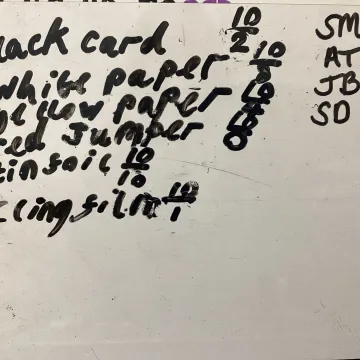 lack card 10/2
white paper 10/8
llow paper
red Jumper
tinfoil 10/10
clingfilm 10/1
SM
AT
JB
SD